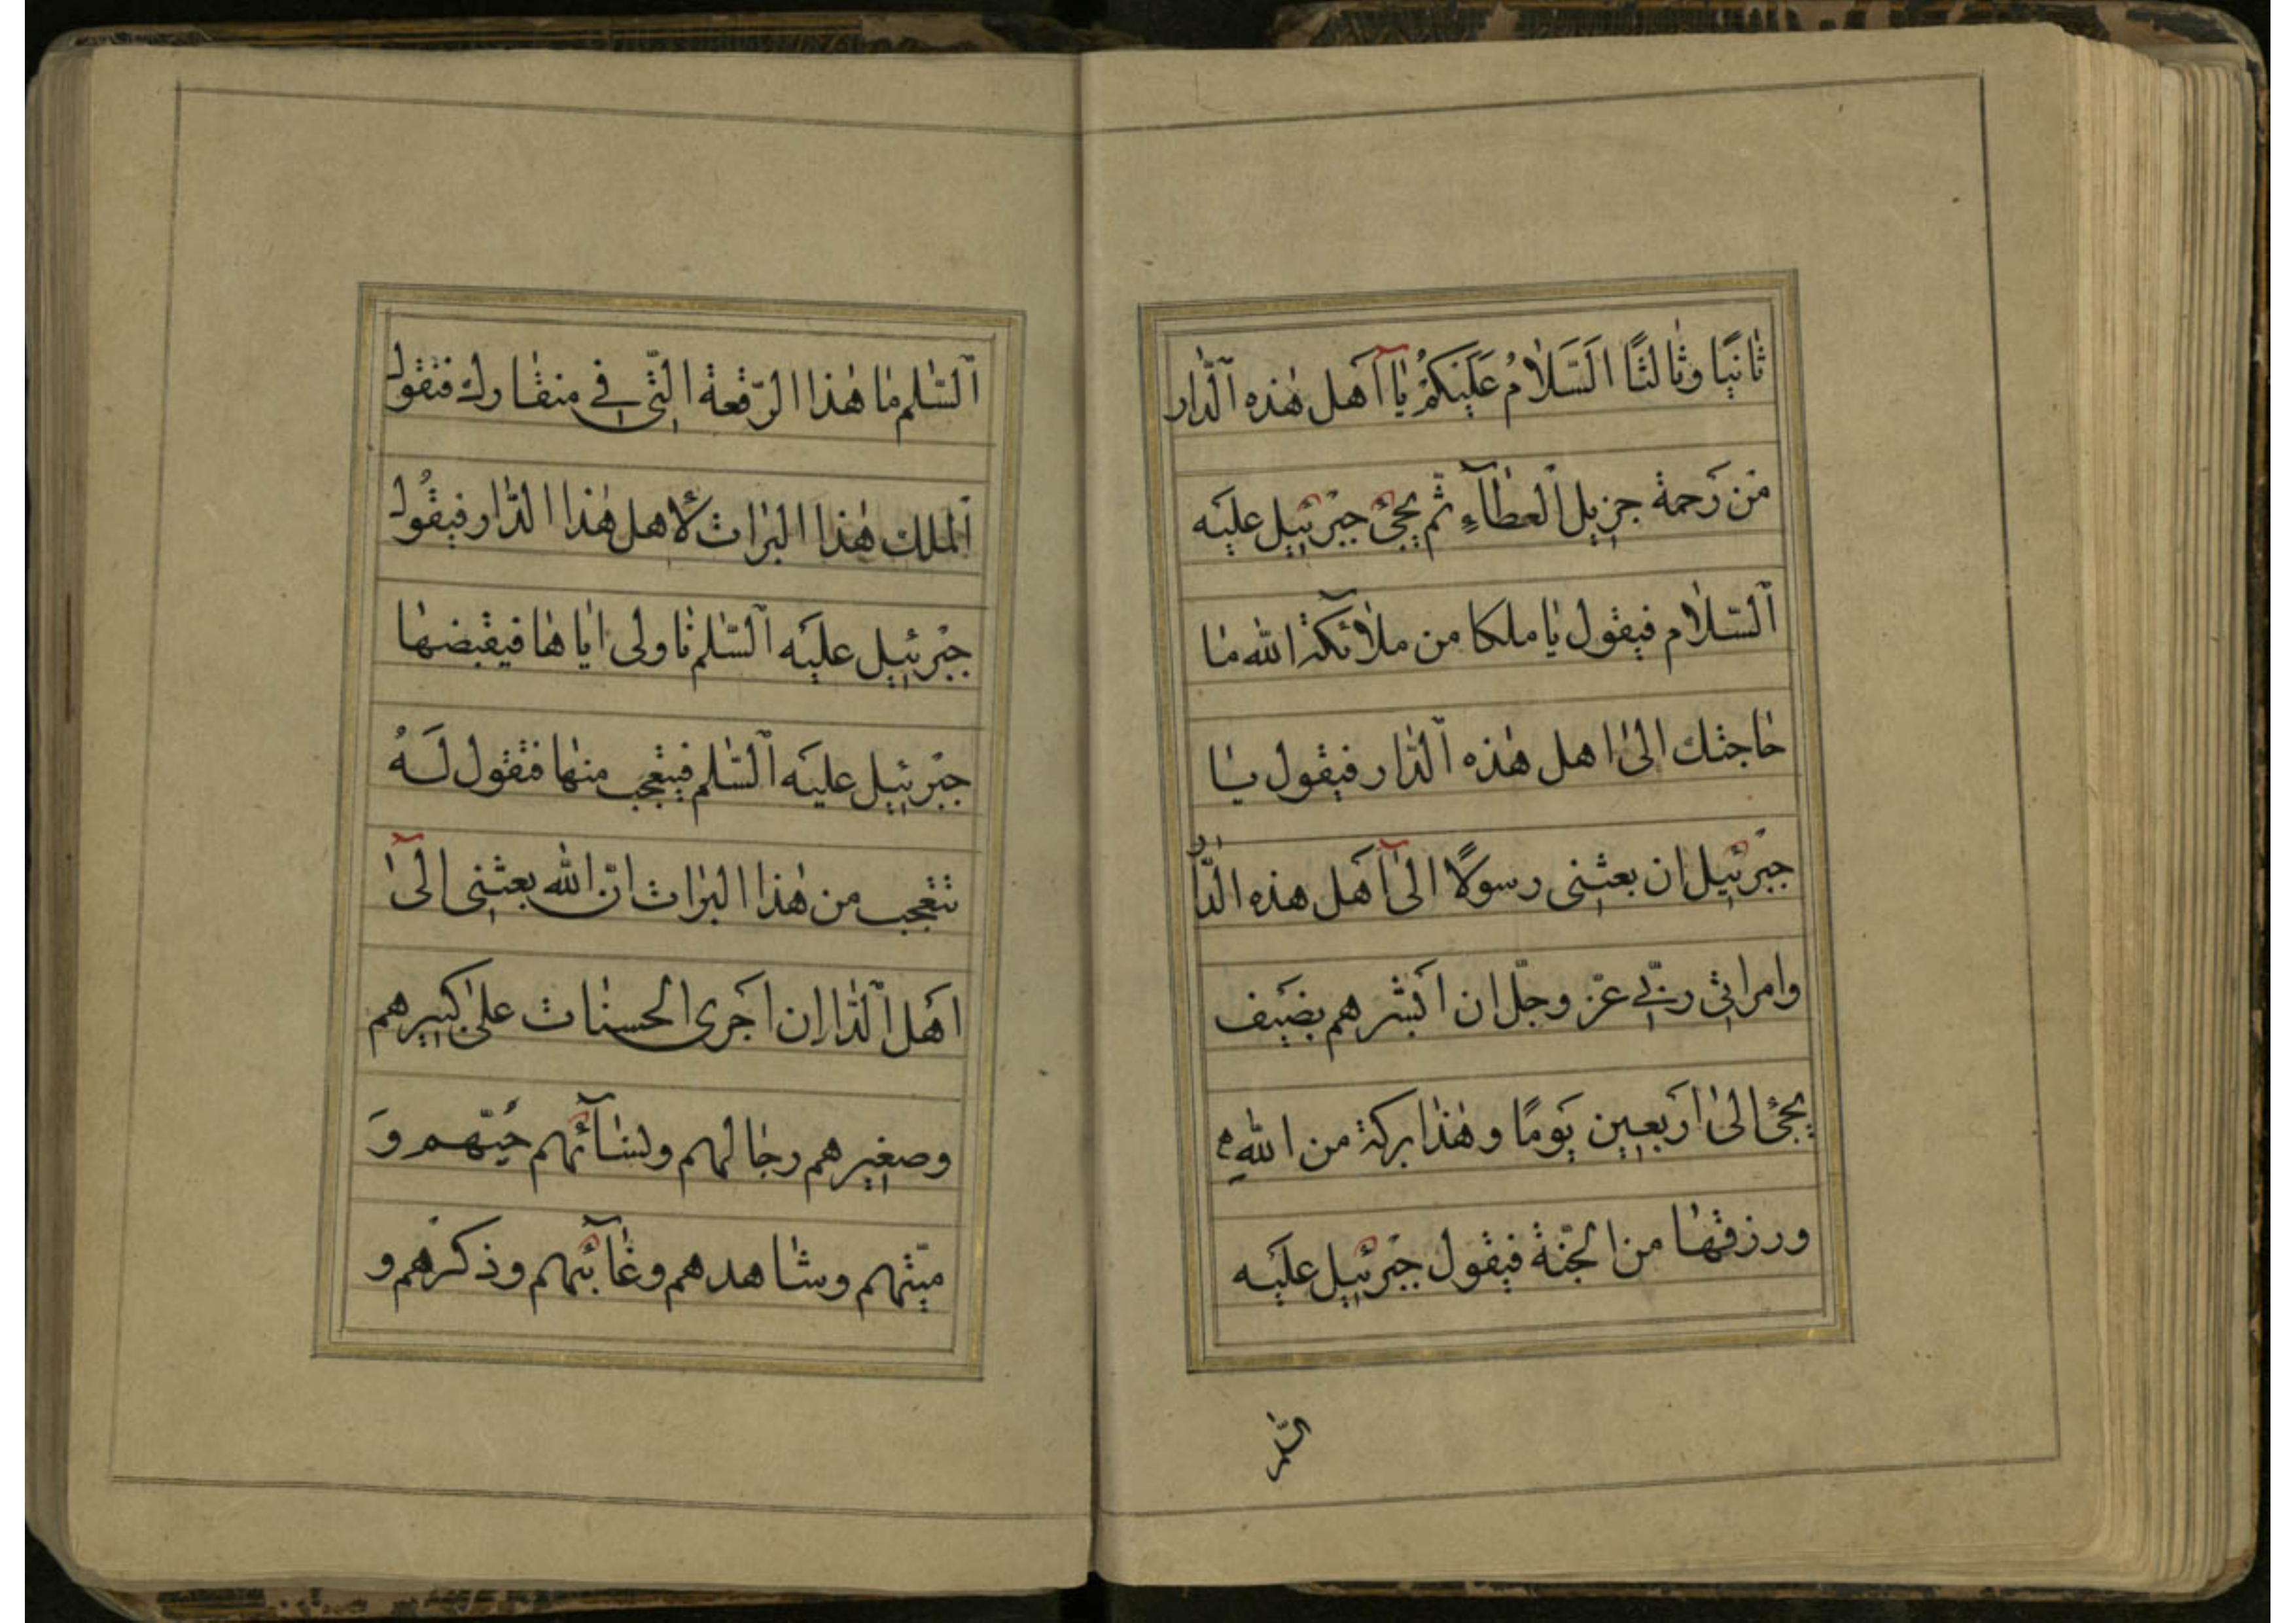 ثانيًا وثالثًا اَلسَّلامُ عَلَيْكُمْ يا آهل هٰذه الدّار
مْن رَحمة جزيل الْعطآءِ ثّم يجئ جبْرئيل عليَه
السّلام فيقول يا ملكا من ملآئكة الله ما
حاجتك الىٰ اهل هٰذه الدّار فيقول يا
جبْرئيل ان بعثنى رسولًا الىٰ آهل هذه الدّار
وامراتى ربّى عزّ وجلّ ان ابَشّرهم بضيَف
يجئ الىٰ ارَبعين يَومًا وهٰذا بركة من اللهِ
ورزقها من الجّنة فيقول جبْرئيل عليَه
السّلم
السّلم ما هٰذا الرّقعة الّتى فى منقارك فتقول
الملك هٰذا البرات لأهل هٰذا الدّار فيقُول
جبْرئيل عليَه السّلم ناولى اياها فيقبضها
جبْرئيل عليَه السّلم فيتعْجب منها فتقول لَهُ
تتعْجب من هٰذا البرات انّ الله بعثنى الىٰٓ
اهَل الدّار ان اجَرى الحسنات علىٰ كبيرهم
وصغيرهم رجالهم ولنسآئهم حَيّهم وَ
ميّتهم وشاهدهم وغآئبهم وذكرْهم و